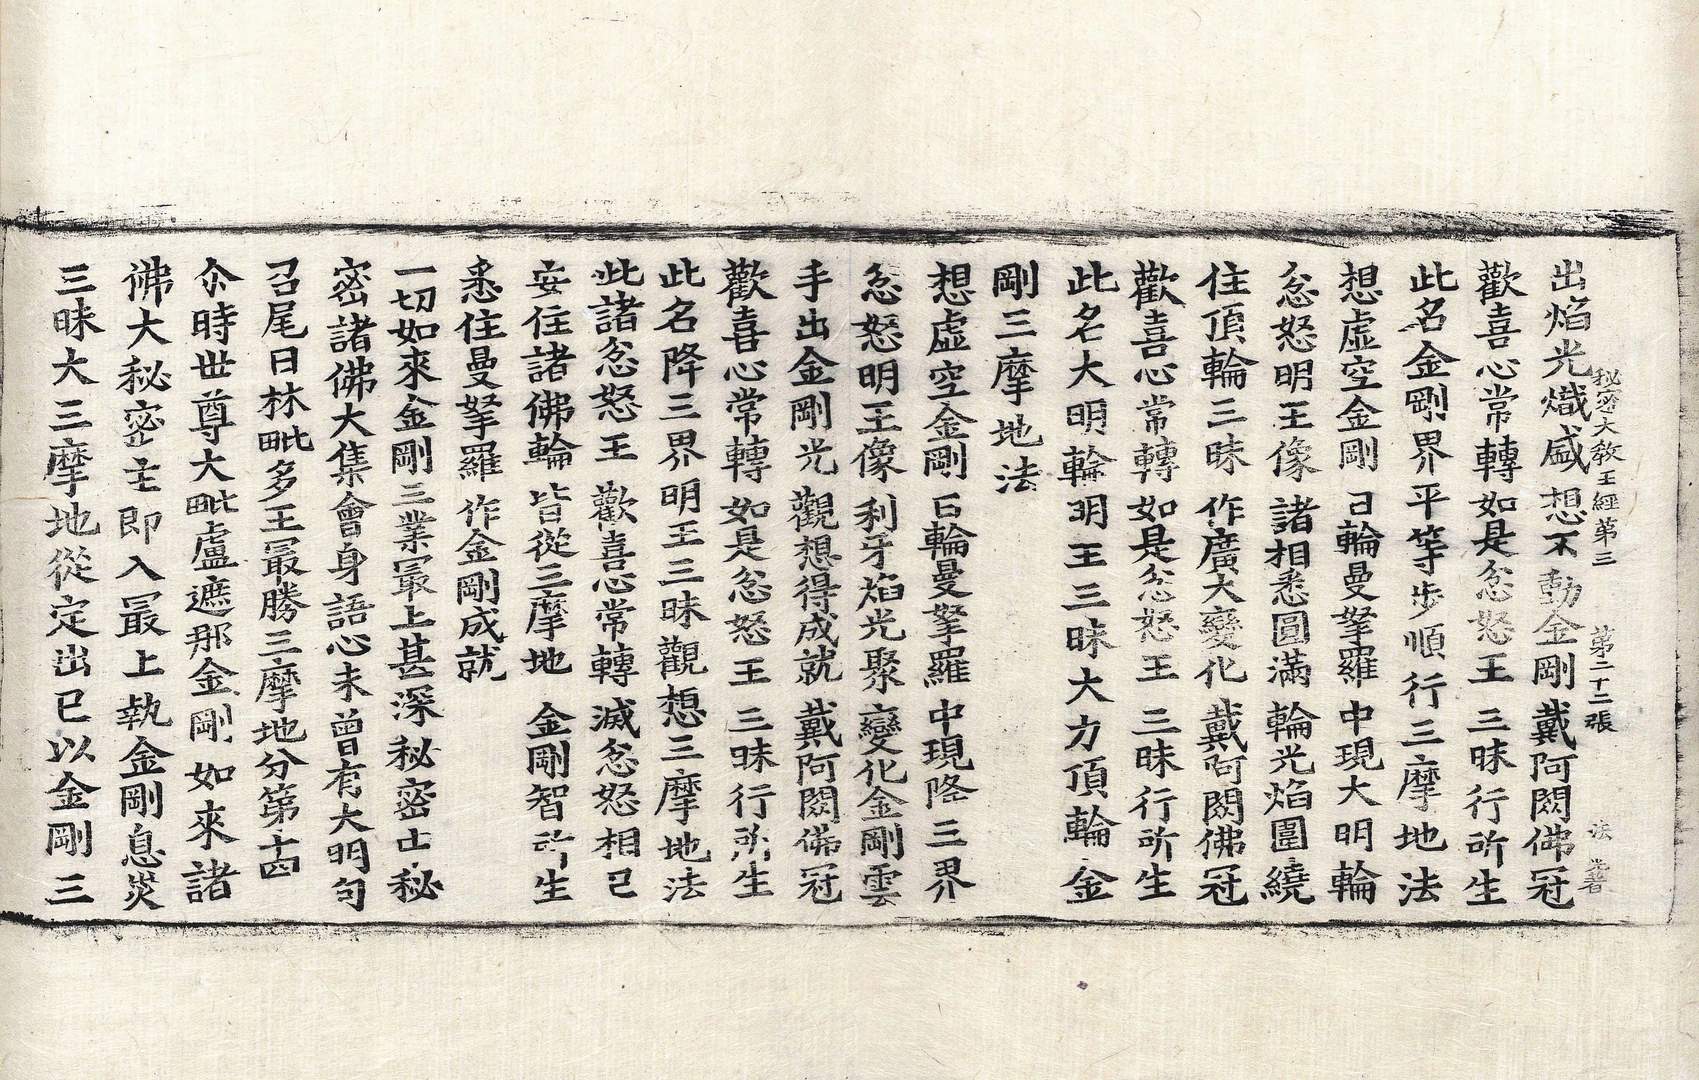 秘密大教王經第三 第二十二張 法
出焰光熾盛想不動金剛戴阿閦佛冠
歡喜心常轉如是忿怒王三昧行所生
此名金剛界平等步順行三摩地法
想虛空金剛日輪曼拏羅中現大明輪
忿怒明王像諸相悉圓滿輪光焰圍繞
住頂輪三昧作廣大變化戴阿閦佛冠
歡喜心常轉如是忿怒王三昧行所生
此名大明輪明王三昧大力頂輪金
剛三摩地法
想虛空金剛日輪曼拏羅中現降三界
忿怒明王像利牙焰光聚變化金剛雲
手出金剛光觀想得成就戴阿閦佛冠
歡喜心常轉如是忿怒王三昧行所生
此名降三界明王三昧觀想三摩地法
此諸忿怒王歡喜心常轉滅忿怒相已
安住諸佛輪皆從三摩地金剛智所生
悉住曼拏羅作金剛成就
一切如來金剛三業最上甚深秘密中秘
密諸佛大集會身語心未曾有大明句
召尾日林毗多王最勝三摩地分第十四
尒時世尊大毗盧遮那金剛如來諸
佛大秘密主即入最上執金剛息災
三昧大三摩地從定出已以金剛三